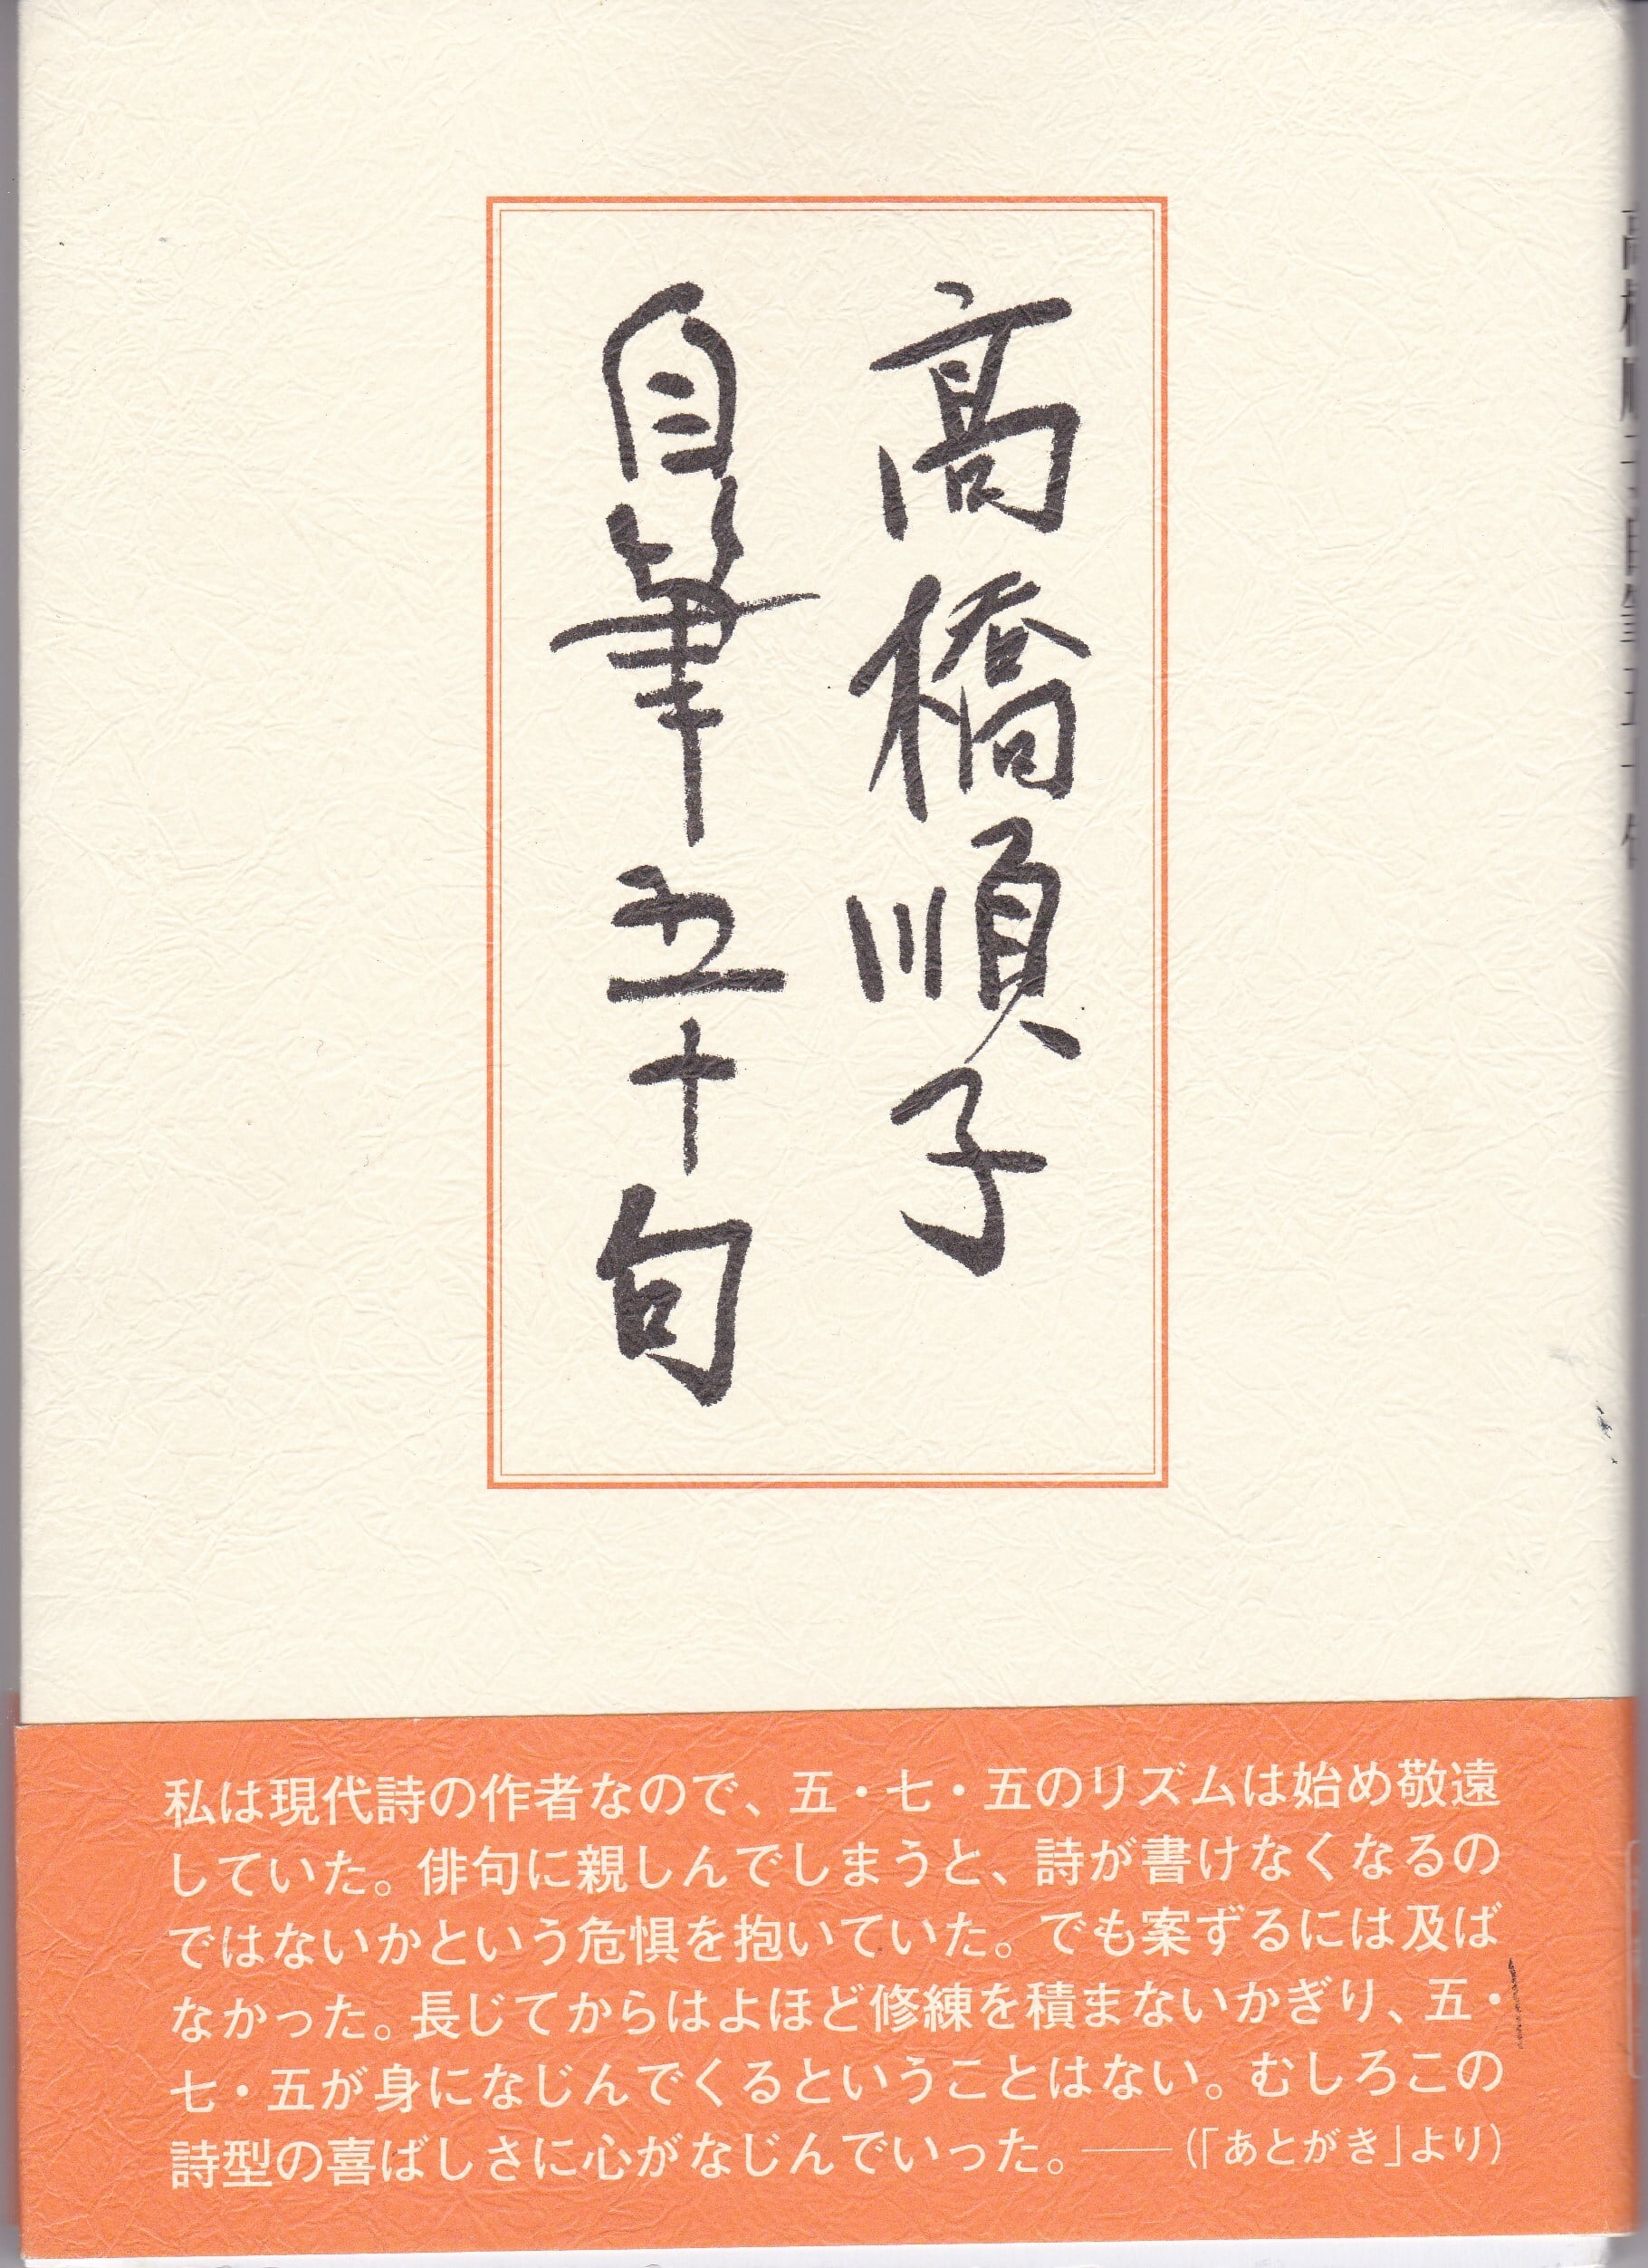 高橋順子
自筆五十句
私は現代詩の作者なので、五・七・五のリズムは始め敬遠
していた。俳句に親しんでしまうと、詩が書けなくなるの
ではないかという危惧を抱いていた。でも案ずるには及ば
なかった。長じてからはよほど修練を積まないかぎり、五・
七・五が身になじんでくるということはない。むしろこの
詩型の喜ばしさに心がなじんでいった。——(「あとがき」より)